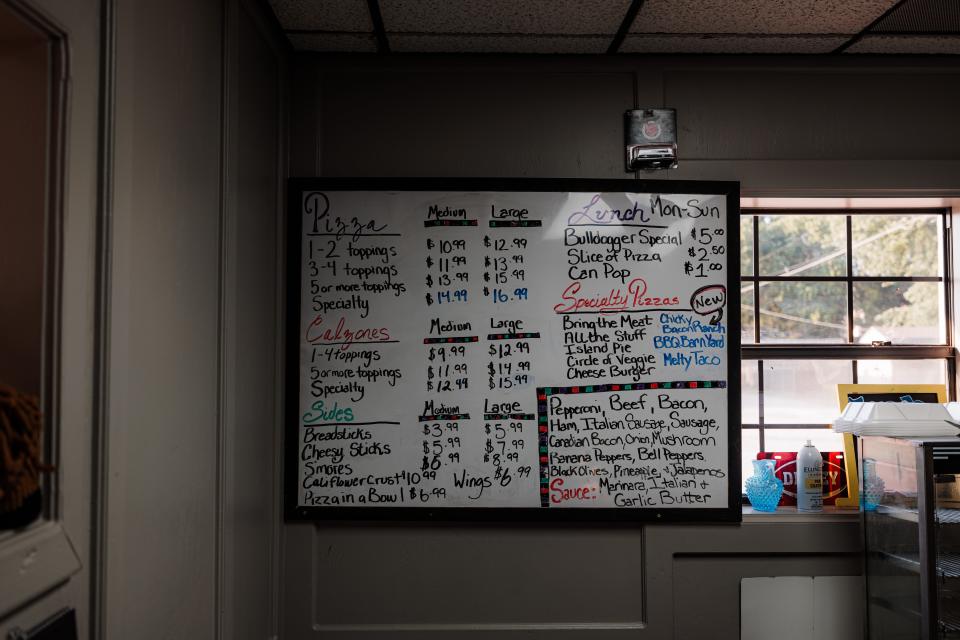 Pizza Medium Large
1-2 toppings $10.99 $12.99
3-4 toppings $11.99 $13.99
5 or more toppings $13.99 $15.99
Specialty $14.99 $16.99
Calzones Medium Large
1-4 toppings $9.99 $12.99
5 or more toppings $11.99 $14.99
Specialty $12.99 $15.99
Sides Medium Large
Breadsticks $3.99 $5.99
Cheesy Sticks $5.99 $7.99
Smores $6.99 $8.99
Califlower Crust $10.99 Wings $6.99
Pizza in a Bowl $6.99
Lunch Mon-Sun
Bulldogger Special $5.00
Slice of Pizza $2.50
Can Pop $1.00
Specialty Pizzas New
Bring the Meat
All the Stuff
Island Pie
Circle of Veggie
Cheese Burger
Chicky
Bacon Ranch
BBQ Barn Yard
Melty Taco
Pepperoni, Beef, Bacon,
Ham, Italian Sausage, Sausage,
Canadian Bacon, Onion, Mushroom
Banana Peppers, Bell Peppers,
Black Olives, Pineapple, + Jalapenos
Sauce: Marinara, Italian +
Garlic Butter